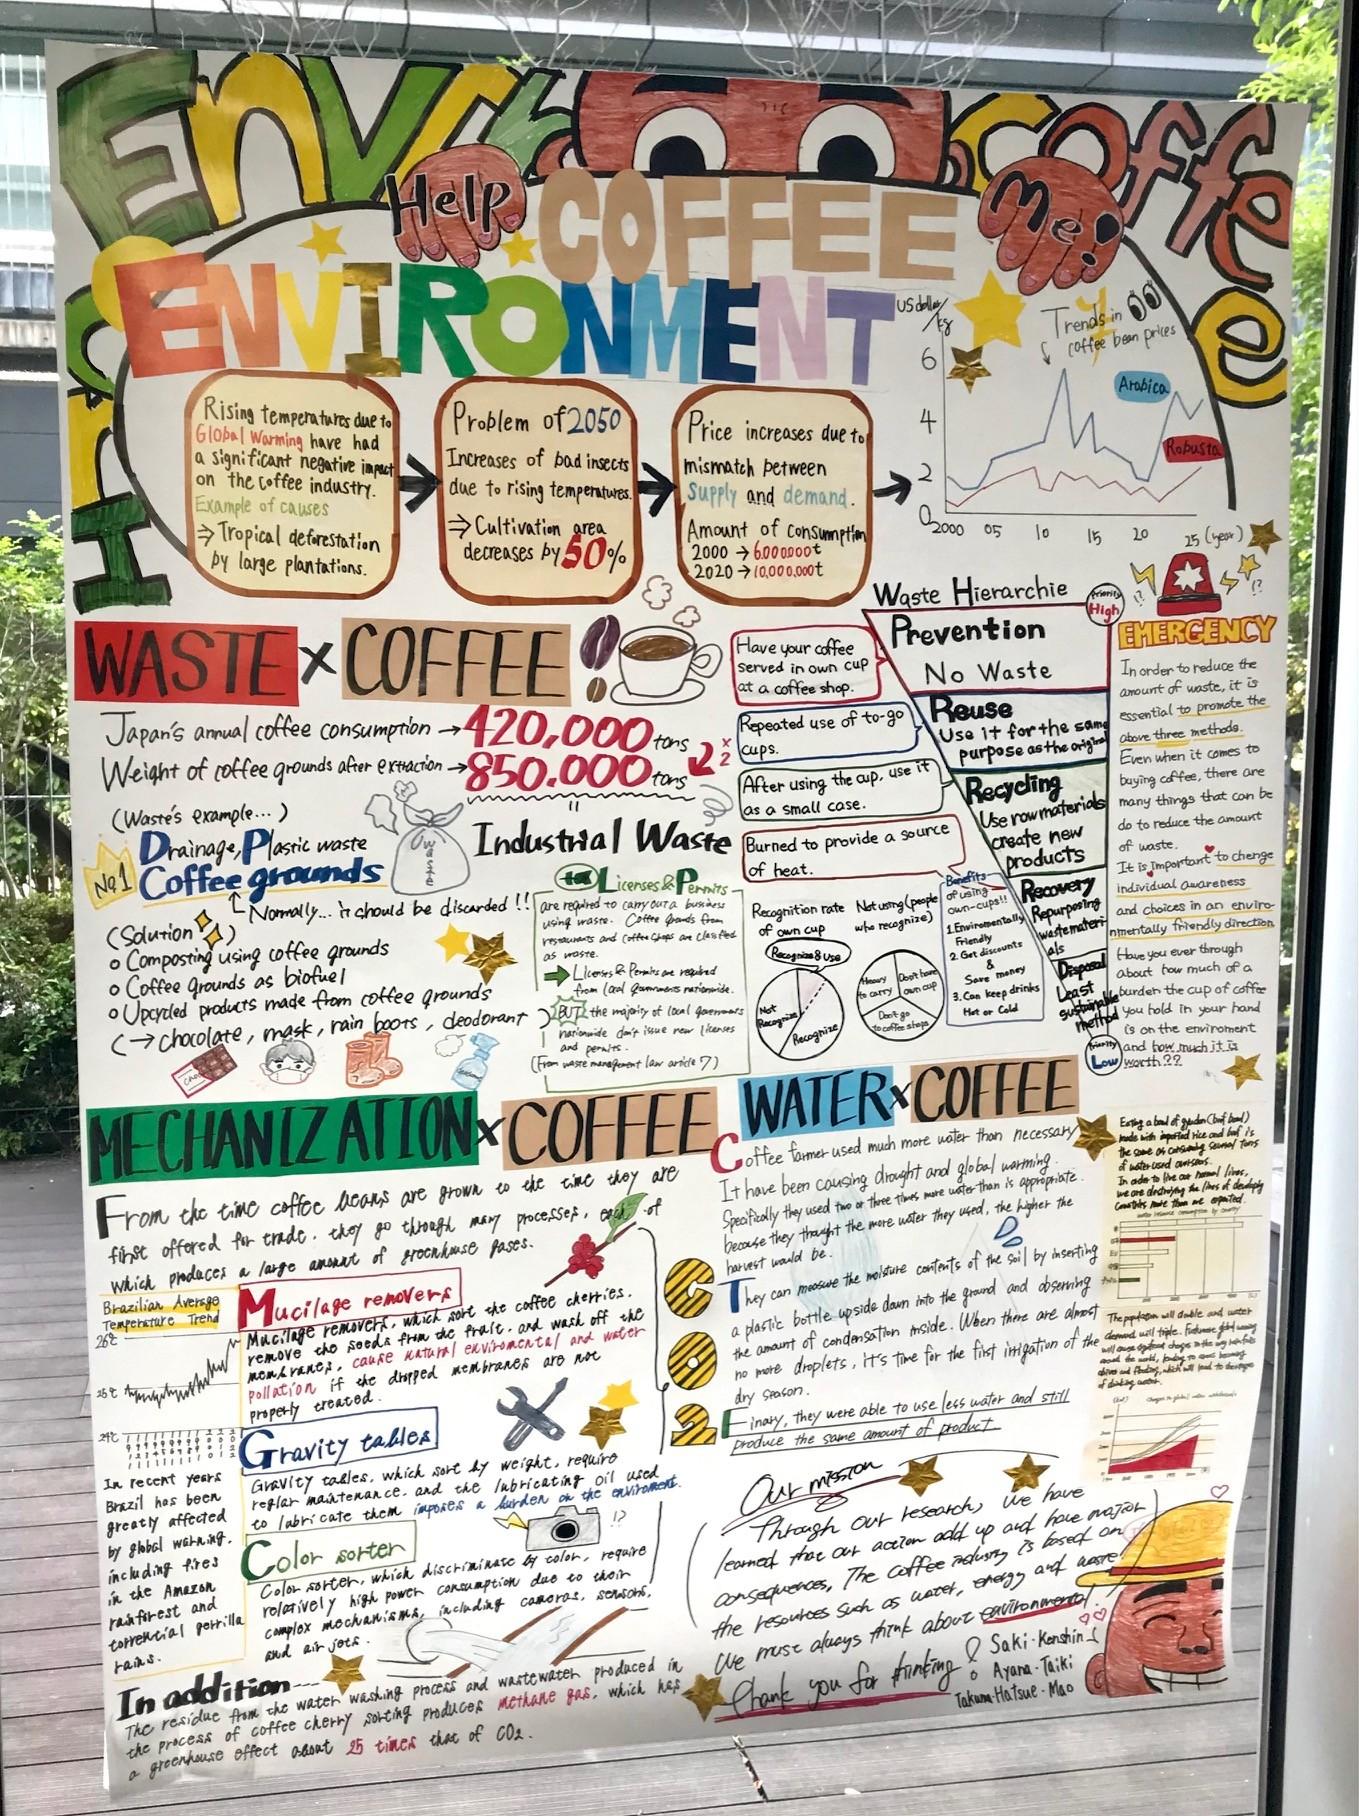 Help COFFEE Me!
ENVIRONMENT
coffee
Rising temperatures due to
Global Warming have had
a significant negative impact
on the coffee industry.
Example of causes
⇒ Tropical deforestation
by large plantations.
Problem of 2050
Increases of bad insects
due to rising temperatures.
⇒ Cultivation area
decreases by 50%
Price increases due to
mismatch between
supply and demand.
Amount of consumption
2000 → 6,000,000t
2020 → 10,000,000t
US dollar/kg
Trends in
coffee bean prices
6
4
2
0
Arabica
Robusta
2000 05 10 15 20 25 (year)
WASTE × COFFEE
Japan's annual coffee consumption → 420,000 tons
Weight of coffee grounds after extraction → 850.000 tons
×2
(Waste's example...)
Drainage, Plastic waste
No1 Coffee grounds
Normally... it should be discarded!!
waste
(Solution)
Composting using coffee grounds
Coffee grounds as biofuel
Upcycled products made from coffee grounds
(→ chocolate, mask, rain boots, deodorant)
Industrial Waste
Licenses & Permits
are required to carry out a business
using waste. Coffee grounds from
restaurants and coffee shops are classified
as waste.
→ Licenses & Permits are required
from local governments nationwide.
BUT the majority of local governments
nationwide don't issue new licenses
and permits.
(From waste management law article 7)
Waste Hierarchie
Priority
High
Prevention
No Waste
Reuse
Use it for the same
purpose as the original
Recycling
Use raw materials
create new
products
Recovery
Repurposing
waste materi-
als
Disposal
Least
sustainable
method
Priority
Low
Have your coffee
served in own cup
at a coffee shop.
Repeated use of to-go
cups.
After using the cup, use it
as a small case.
Burned to provide a source
of heat.
Recognition rate
of own cup
Recognize & Use
Not
Recognize
Recognize
Not using (people
who recognize)
Heavy
to carry
Don't have
own cup
Don't go
to coffee shops
Benefits
of using
own-cups!!
1. Enviromentally
Friendly
2. Get discounts
&
Save money
3. Can keep drinks
Hot or Cold
EMERGENCY
In order to reduce the
amount of waste, it is
essential to promote the
above three methods.
Even when it comes to
buying coffee, there are
many things that can be
do to reduce the amount
of waste.
It is important to change
individual awareness
and choices in an enviro-
nmentally friendly direction
Have you ever through
about how much of a
burden the cup of coffee
you hold in your hand
is on the enviroment
and how much it is
worth??
MECHANIZATION × COFFEE
From the time coffee beans are grown to the time they are
first offered for trade. they go through many processes, each of
which produces a large amount of greenhouse gases.
Brazilian Average
Temperature Trend
26℃
25℃
24℃
In recent years
Brazil has been
greatly affected
by global warming.
including fires
in the Amazon
rainforest and
torrential gerrilla
rains.
Mucilage removers
Mucilage removers, which sort the coffee cherries.
remove the seeds from the fruit. and wash off the
membranes, cause natural enviromental and water
pollation if the dropped membranes are not
properly treated.
Gravity tables
Gravity tables, which sort by weight, require
reglar maintenance. and the lubricating oil used
to lubricate them imposes a burden on the enviroment.
Color sorter
Color sorter, which discriminate by color, require
relatively high power consumption due to their
complex mechanisms, including cameras, sensors,
and air jets.
In addition
The residue from the water washing process and wastewater produced in
the process of coffee cherry sorting produces methane gas, which has
a greenhouse effect about 25 times that of CO2.
CO2
WATER × COFFEE
Coffee farmer used much more water than necessary
It have been causing drought and global warming.
Specifically they used two or three times more water than is appropriate.
because they thought the more water they used, the higher the
harvest would be.
They can measure the moisture contents of the soil by inserting
a plastic bottle upside down into the ground and observing
the amount of condensation inside. When there are almost
no more droplets, it's time for the first irrigation of the
dry season.
Finary, they were able to use less water and still
produce the same amount of product
Eating a bowl of gyudon (beef bowl)
made with imported rice and beef is
the same as consuming several tons
of water used overseas.
In order to live our normal lives,
we are destroying the lives of developing
countries more than we expected.
The population will double and water
demand will triple.
Our mission
Through our research, we have
learned that our action add up and have major
consequences. The coffee industry is based on
the resources such as water, energy and waste.
We must always think about environmental!
Thank you for thinking
Saki・Kenshin
Ayana・Taiki
Takuma・Hatsue・Mao